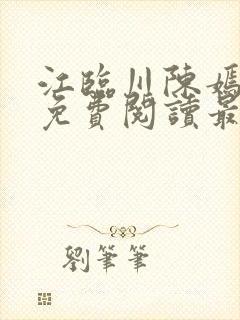 江臨川陳嫣
免費閱讀最
劉筆筆